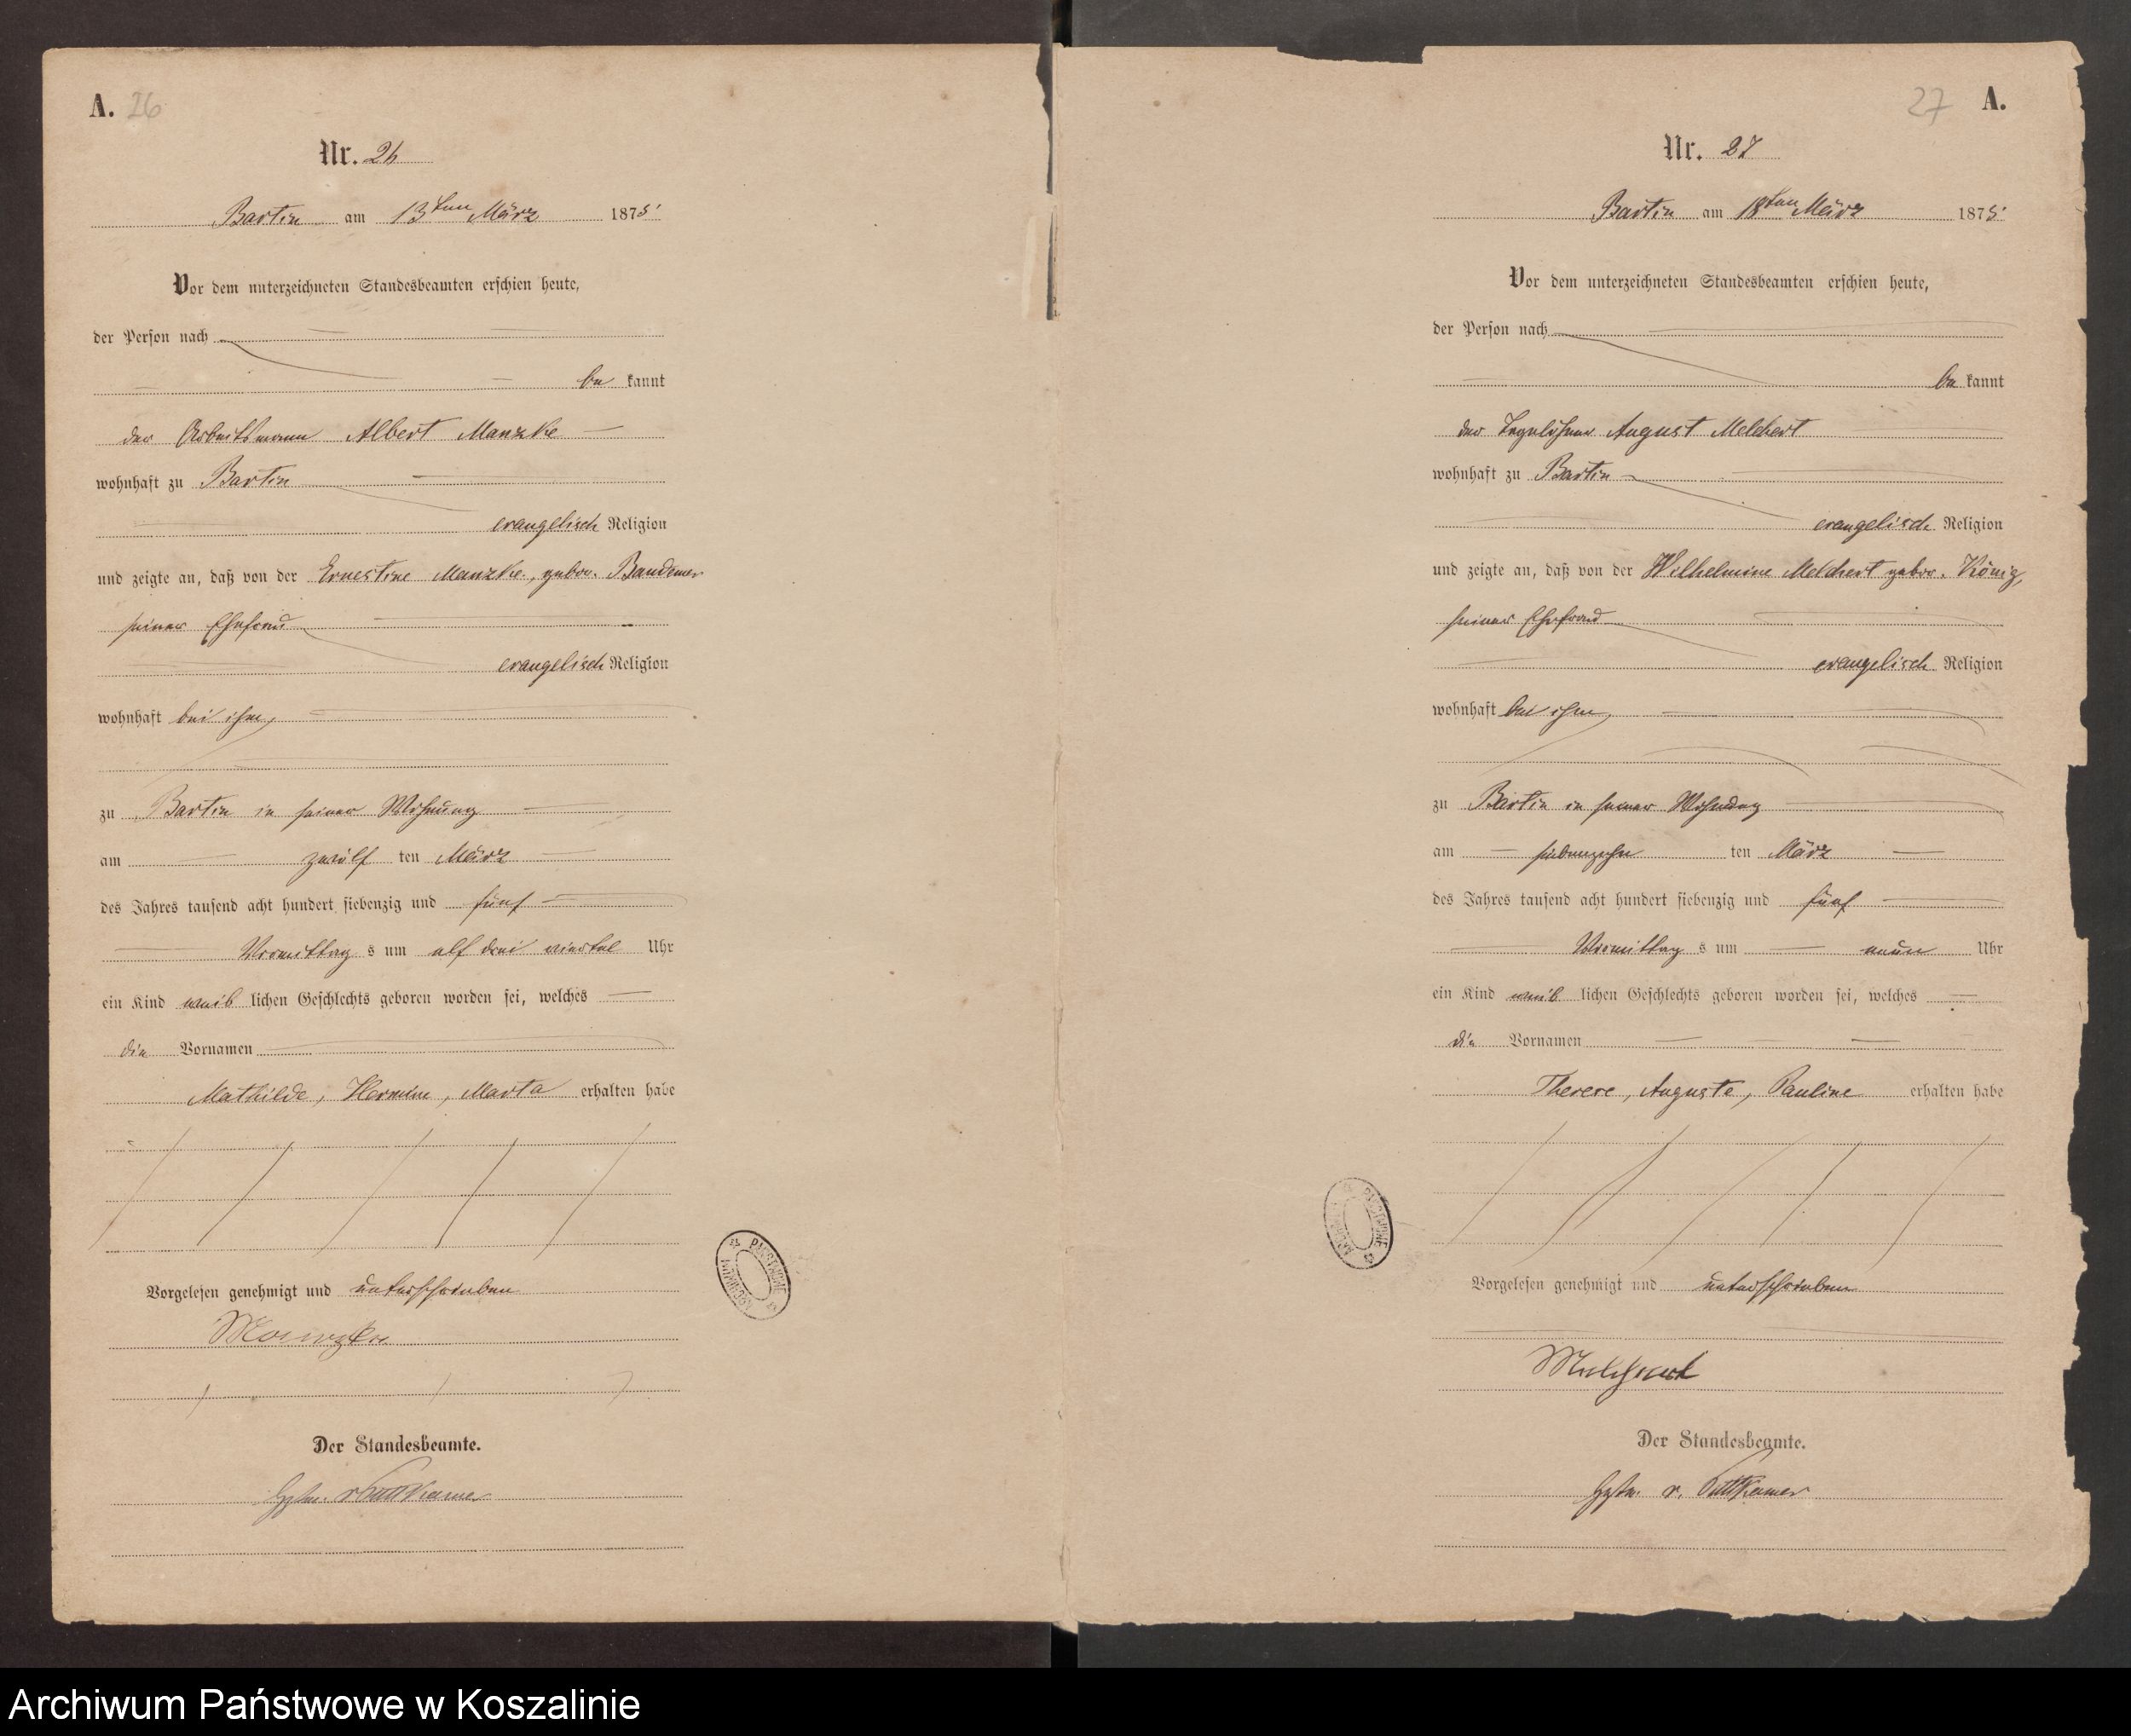 A. 26
Nr. 26
Bartin am 13ten März 1875
Vor dem unterzeichneten Standesbeamten erschien heute,
der Person nach
be kannt
der Arbeitsmann Albert Manzke
wohnhaft zu Bartin
evangelisch Religion
und zeigte an, daß von der Ernestine Manzke, gebor. Bandemer
seiner Ehefrau
evangelisch Religion
wohnhaft bei ihm,
zu Bartin in seiner Wohnung
am zwölf ten März
des Jahres tausend acht hundert siebenzig und fünf
Vormittag s um elf drei viertel Uhr
ein Kind weib lichen Geschlechts geboren worden sei, welches
die Vornamen
Mathilde, Hermine, Marta erhalten habe
Vorgelesen genehmigt und unterschrieben
Manzke
Der Standesbeamte.
v Puttkamer
ARCHIWUM PAŃSTWOWE
27 A.
Nr. 27
Bartin am 18ten März 1875
Vor dem unterzeichneten Standesbeamten erschien heute,
der Person nach
be kannt
der Tagelöhner August Melchert
wohnhaft zu Bartin
evangelisch Religion
und zeigte an, daß von der Wilhelmine Melchert gebor. König,
seiner Ehefrau
evangelisch Religion
wohnhaft bei ihm,
zu Bartin in seiner Wohnung
am siebenzehn ten März
des Jahres tausend acht hundert siebenzig und fünf
Vormittag s um neun Uhr
ein Kind weib lichen Geschlechts geboren worden sei, welches
die Vornamen
Therese, Auguste, Pauline erhalten habe
Vorgelesen genehmigt und unterschrieben
Melchert
Der Standesbeamte.
v. Puttkamer
ARCHIWUM PAŃSTWOWE
Archiwum Państwowe w Koszalinie